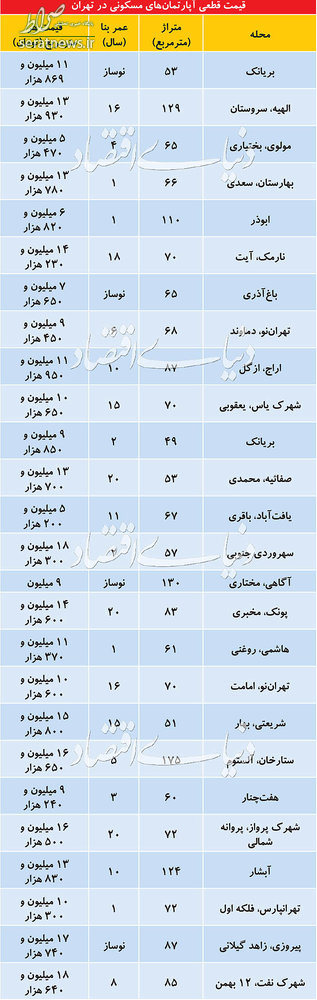 قیمت قطعی آپارتمان‌های مسکونی در تهران
محله متراژ (مترمربع) عمر بنا (سال)
seratnews.ir
بریانک ۵۳ نوساز ۱۱ میلیون و ۸۶۹ هزار
الهیه، سروستان ۱۲۹ ۱۶ ۱۳ میلیون و ۹۳۰ هزار
مولوی، بختیاری ۶۵ ۴ ۵ میلیون و ۴۷۰ هزار
بهارستان، سعدی ۶۶ ۱ ۱۳ میلیون و ۷۸۰ هزار
ابوذر ۱۱۰ ۱ ۶ میلیون و ۸۲۰ هزار
نارمک، آیت ۷۰ ۱۸ ۱۴ میلیون و ۲۳۰ هزار
باغ‌آذری ۶۵ نوساز ۷ میلیون و ۶۵۰ هزار
تهران‌نو، دماوند ۶۸ ۶ ۹ میلیون و ۴۵۰ هزار
اراج، ازگل ۸۷ ۱۰ ۱۱ میلیون و ۹۵۰ هزار
شهرک یاس، یعقوبی ۷۰ ۱۵ ۱۰ میلیون و ۶۵۰ هزار
بریانک ۴۹ ۲ ۹ میلیون و ۸۵۰ هزار
صفائیه، محمدی ۵۳ ۲۰ ۱۳ میلیون و ۷۰۰ هزار
یافت‌آباد، باقری ۶۷ ۱۱ ۵ میلیون و ۲۰۰ هزار
سهروردی جنوبی ۵۷ ۱۸ میلیون و ۳۰۰ هزار
آگاهی، مختاری ۱۳۰ نوساز ۹ میلیون
پونک، مخبری ۸۳ ۲۰ ۱۴ میلیون و ۶۰۰ هزار
هاشمی، روغنی ۶۱ ۱ ۱۱ میلیون و ۳۷۰ هزار
تهران‌نو، امامت ۷۰ ۱۶ ۱۰ میلیون و ۶۰۰ هزار
شریعتی، بهار ۵۱ ۱۵ ۱۵ میلیون و ۸۰۰ هزار
ستارخان، المتوم ۱۷۵ ۵ ۱۶ میلیون و ۶۵۰ هزار
هفت‌چنار ۶۰ ۳ ۹ میلیون و ۲۴۰ هزار
شهرک پرواز، پروانه شمالی ۷۲ ۲۰ ۱۶ میلیون و ۵۰۰ هزار
آبشار ۱۲۴ ۱۰ ۱۳ میلیون و ۸۳۰ هزار
تهرانپارس، فلکه اول ۷۲ ۱ ۱۰ میلیون و ۳۰۰ هزار
پیروزی، زاهد گیلانی ۸۷ نوساز ۱۷ میلیون و ۷۴۰ هزار
شهرک نفت، ۱۲ بهمن ۸۵ ۸ ۱۸ میلیون و ۶۴۰ هزار
دنیای اقتصاد